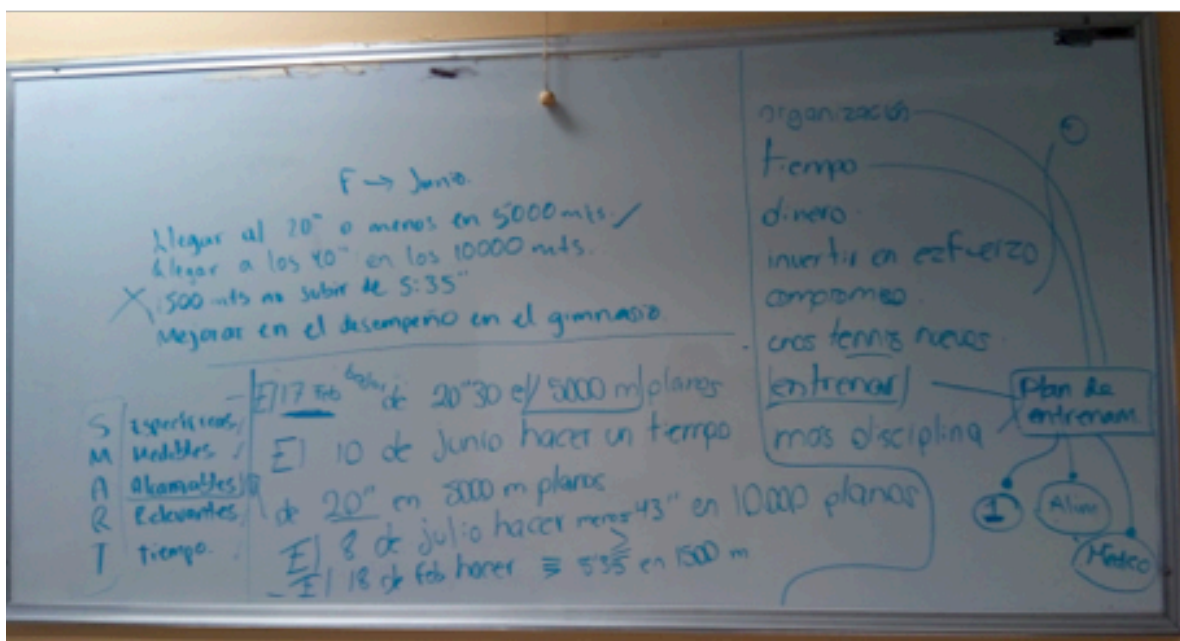 F → Junio.
Llegar al 20" o menos en 5000 mts.
Llegar a los 40" en los 10000 mts.
1500 mts no subir de 5:35"
Mejorar en el desempeño en el gimnasio.
S Específicas
M Medibles
A Alcanzables
R Relevantes
T Tiempo.
El 17 Feb bajar de 20"30 el 5000 m planos
El 10 de Junio hacer un tiempo
de 20" en 5000 m planos
El 8 de julio hacer menos 43" en 10.000 planos
El 18 de feb hacer 5'35 en 1500 m
organización
tiempo
dinero
invertir en ezfuerzo
compromiso
unos tennis nuevos
entrenar
mas disciplina
Plan de
entrenam.
1
Alim
Médico